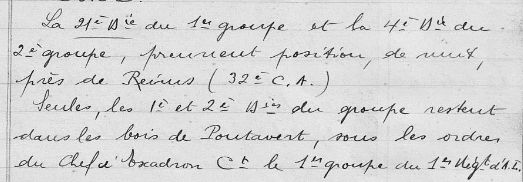 La 21e Bie du 1er groupe et la 4e Bie du
2e groupe, prennent position, de nuit,
près de Reims (32e C.A.)
Seules, les 1e et 2e Bies du groupe restent
dans les bois de Pontavert, sous les ordres
du Chef d'Escadron Ct le 1er groupe du 1er Régt d'A.L.